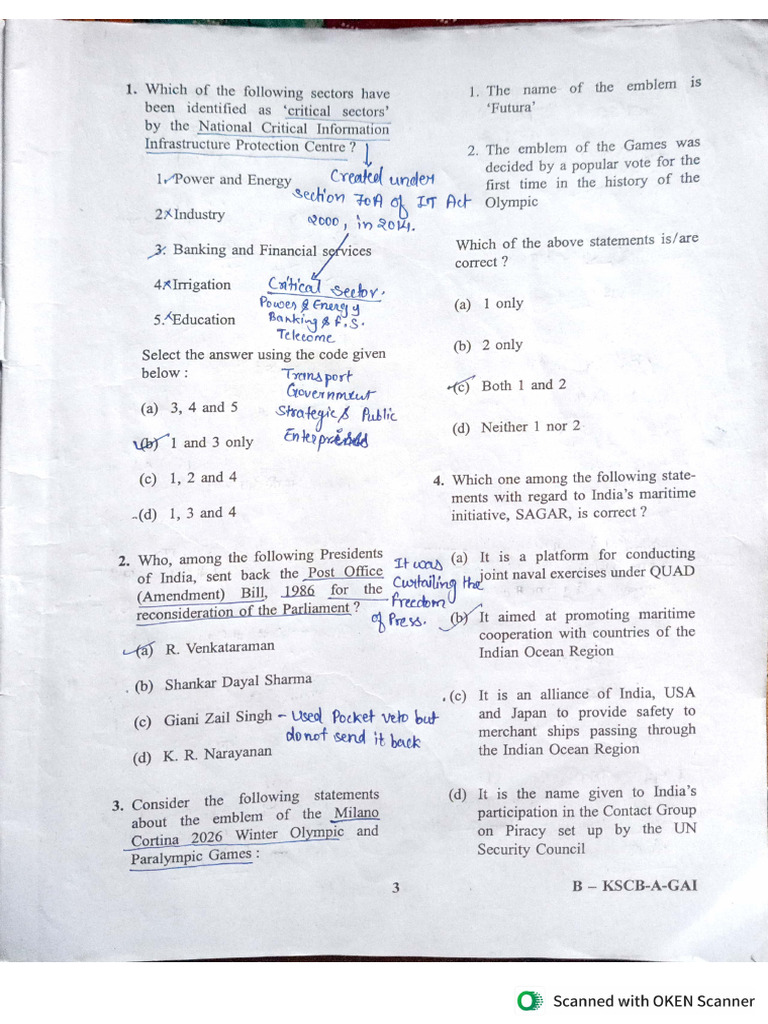 1. Which of the following sectors have
been identified as ‘critical sectors’
by the National Critical Information
Infrastructure Protection Centre ?
1. Power and Energy
2. Industry
3. Banking and Financial services
4. Irrigation
5. Education
Created under
section 70A of IT Act
2000, in 2014.
Critical sector.
Power & Energy
Banking & F.S.
Telecome
Transport
Government
Strategic & Public
Enterprises
Select the answer using the code given
below :
(a) 3, 4 and 5
(b) 1 and 3 only
(c) 1, 2 and 4
(d) 1, 3 and 4
2. Who, among the following Presidents
of India, sent back the Post Office
(Amendment) Bill, 1986 for the
reconsideration of the Parliament ?
It was
Curtailing the
Freedom
of Press.
(a) R. Venkataraman
(b) Shankar Dayal Sharma
(c) Giani Zail Singh – Used Pocket veto but
do not send it back
(d) K. R. Narayanan
3. Consider the following statements
about the emblem of the Milano
Cortina 2026 Winter Olympic and
Paralympic Games :
1. The name of the emblem is
‘Futura’
2. The emblem of the Games was
decided by a popular vote for the
first time in the history of the
Olympic
Which of the above statements is/are
correct ?
(a) 1 only
(b) 2 only
(c) Both 1 and 2
(d) Neither 1 nor 2
4. Which one among the following state-
ments with regard to India’s maritime
initiative, SAGAR, is correct ?
(a) It is a platform for conducting
joint naval exercises under QUAD
(b) It aimed at promoting maritime
cooperation with countries of the
Indian Ocean Region
(c) It is an alliance of India, USA
and Japan to provide safety to
merchant ships passing through
the Indian Ocean Region
(d) It is the name given to India’s
participation in the Contact Group
on Piracy set up by the UN
Security Council
3
B – KSCB-A-GAI
Scanned with OKEN Scanner